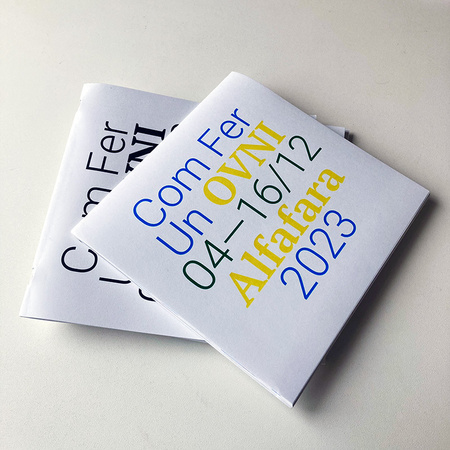 Com Fer
Un OVNI
04—16/12
Alfafara
2023
Com Fer
OVNI